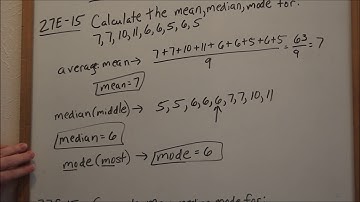 27E-15 Calculate the mean, median, mode for:
7, 7, 10, 11, 6, 6, 5, 6, 5
average: mean → 7+7+10+11+6+6+5+6+5 = 63 = 7
9 9
mean = 7
median (middle) → 5, 5, 6, 6, 6, 7, 7, 10, 11
median = 6
mode (most) → mode = 6